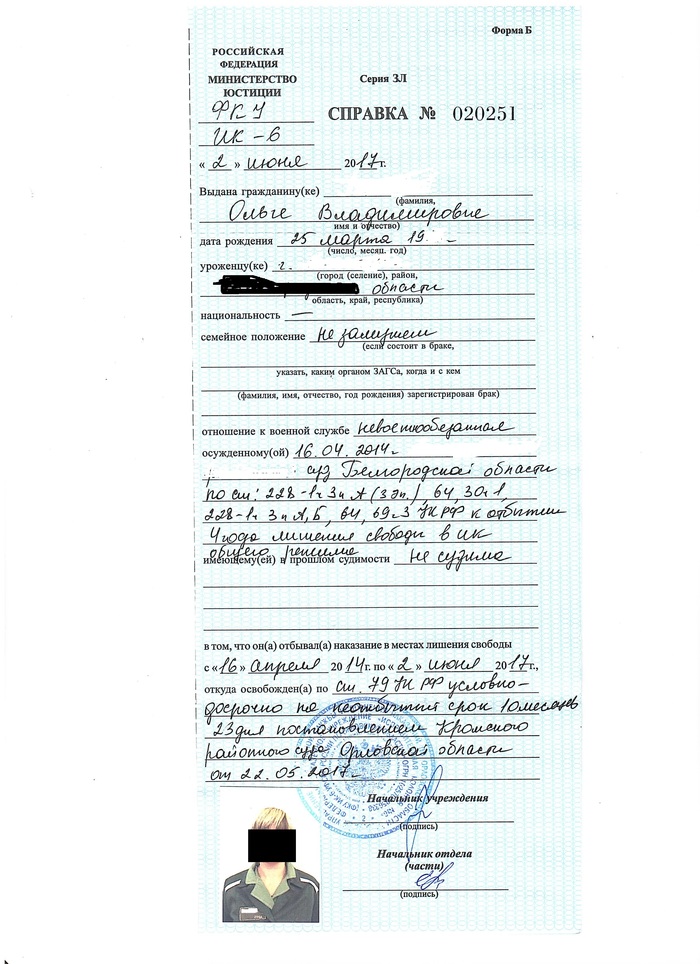 Форма Б
РОССИЙСКАЯ
ФЕДЕРАЦИЯ
МИНИСТЕРСТВО
ЮСТИЦИИ
Серия ЗЛ
ФКУ
ИК-6
СПРАВКА № 020251
« 2 » июня 2017г.
Выдана гражданину(ке)
(фамилия,
Ольге Владимировне
имя и отчество)
дата рождения 25 марта 19
(число, месяц, год)
уроженцу(ке) г.
(город (селение), район,
области
область, край, республика)
национальность —
семейное положение не замужем
(если состоит в браке,
указать, каким органом ЗАГСа, когда и с кем
(фамилия, имя, отчество, год рождения) зарегистрирован брак)
отношение к военной службе невоеннообязанная
осужденному(ой) 16.04.2014г.
суд Белгородской области
по ст: 228-1ч3пА (3эп.), 64, 30ч1,
228-1ч3пА,Б, 64, 69ч3 УК РФ к отбытию
4 года лишения свободы в ИК
общего режима
имеющему(ей) в прошлом судимости не судима
в том, что он(а) отбывал(а) наказание в местах лишения свободы
с «16» апреля 2014г. по «2» июня 2017г.,
откуда освобожден(а) по ст. 79 УК РФ условно-
досрочно на неотбытый срок 10 месяцев
23 дня постановлением Кромского
районного суда Орловской области
от 22.05.2017г.
Начальник учреждения
(подпись)
Начальник отдела
(части)
(подпись)